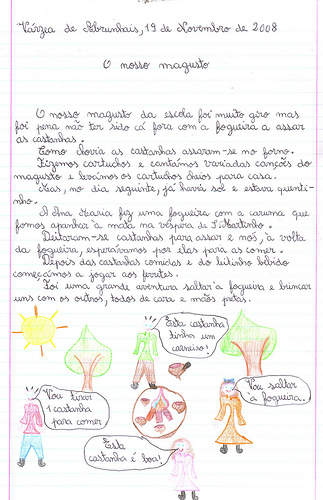 Várzea de Abrunhais, 19 de Novembro de 2008
O nosso magusto
O nosso magusto da escola foi muito giro mas
foi pena não ter sido cá fora com a fogueira a assar
as castanhas.
Como chovia as castanhas assaram-se no forno.
Fizemos cartuchos e cantámos variadas canções do
magusto e levámos os cartuchos cheios para casa.
Mas, no dia seguinte, já havia sol e estava quenti-
nho.
A Ana Maria fez uma fogueira com a caruma que
fomos apanhar à mata na véspera de S. Martinho.
Deitaram-se castanhas para assar e nós, à volta
da fogueira, esperávamos por elas para as comer.
Depois das castanhas comidas e do leitinho bebido
começámos a jogar aos ferretes.
Foi uma grande aventura saltar à fogueira e brincar
uns com os outros, todos de cara e mãos pretas.
Esta castanha
tinha um
carneiro!
Vou tirar
1 castanha
para comer
Vou saltar
à fogueira.
Esta
castanha é boa!